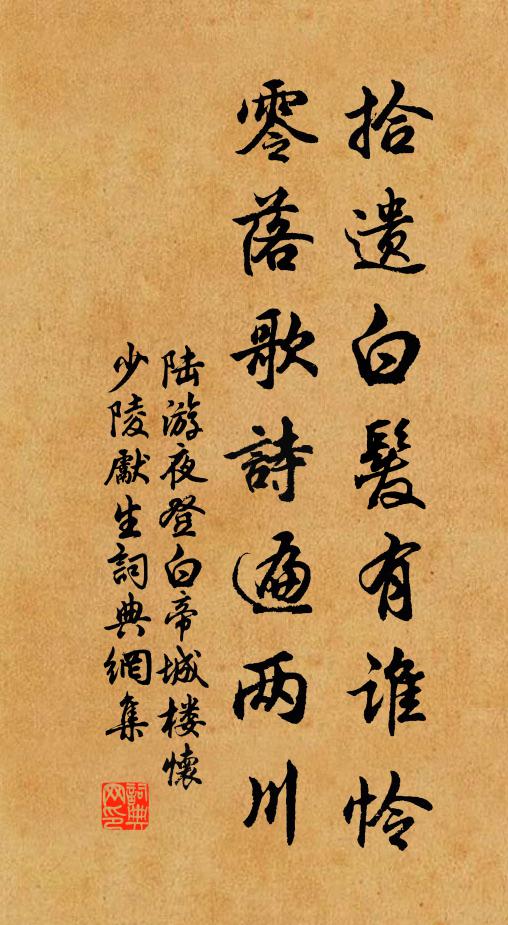 拾遗白髮有谁怜
零落歌詩遍两川
陆游夜登白帝城楼懷
少陵獻生詞典網集
詞典
网印